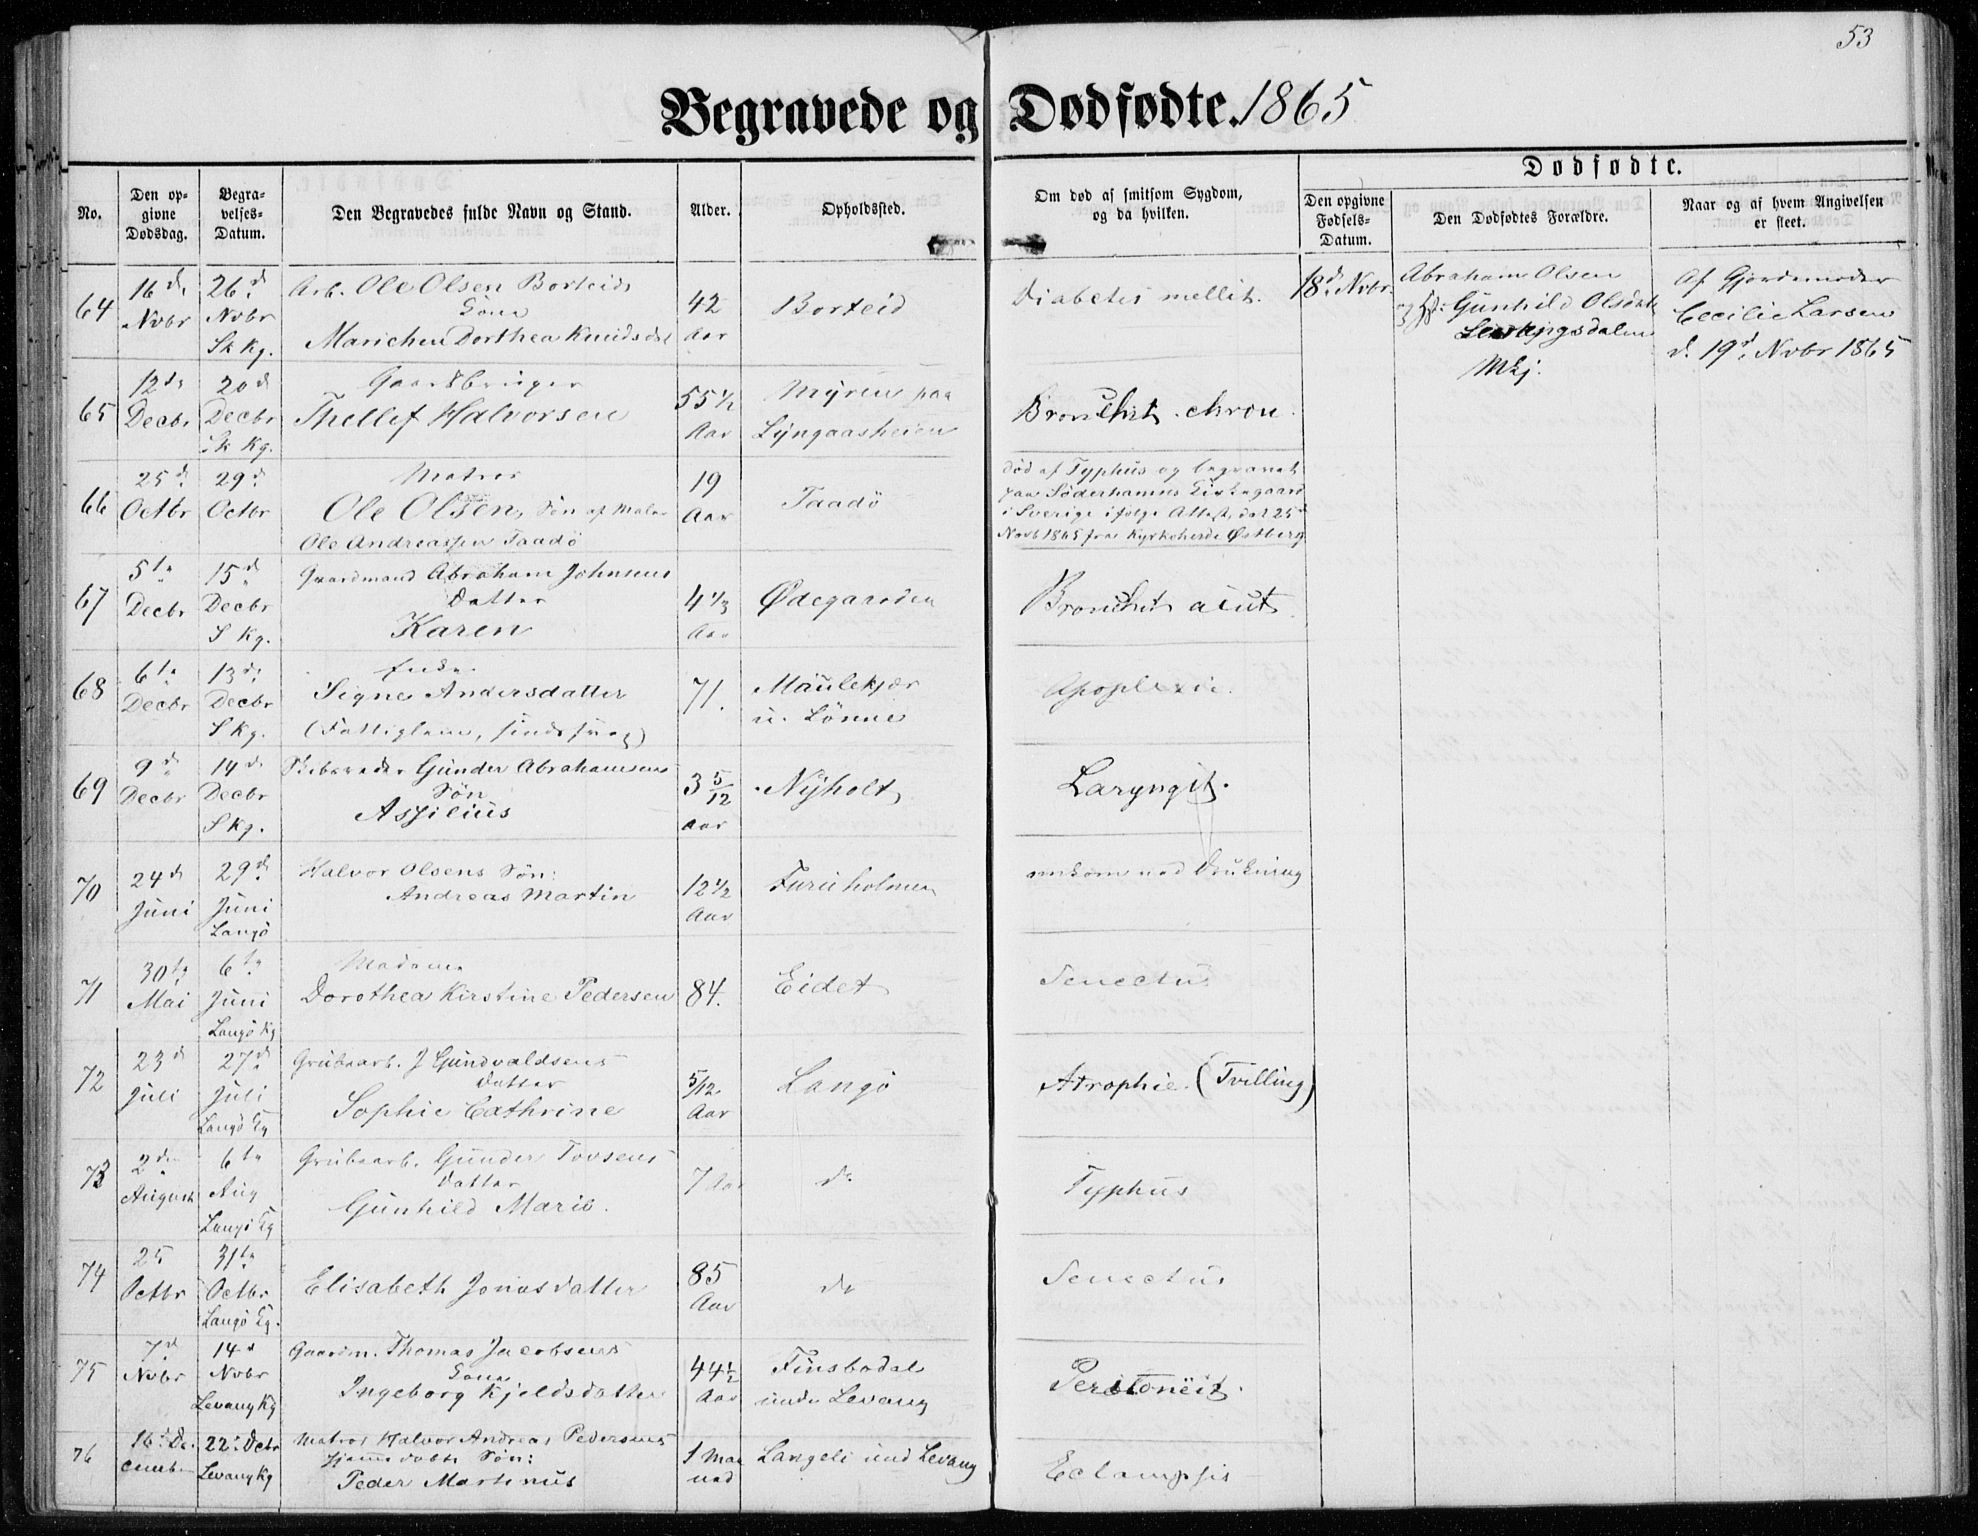 53
Begravede og Dødfødte. 1865
Dødfødte.
No.
Den op-
givne
Dødsdag.
Begra-
velses-
Datum.
Den Begravedes fulde Navn og Stand.
Alder.
Opholdssted.
Om død af smitsom Sygdom,
og da hvilken.
Den opgivne
Fødsels-
Datum.
Den Dødfødtes Forældre.
Naar og af hvem Angivelsen
er skeet.
64
16de
Novbr
26d
Novbr
Sk Kg.
Arb. Ole Olsen Borteids
Kone
Marichen Dorthea Knudsdtr
42
Aar
Borteid
Diabetes mellit.
18d Nvbr.
Abraham Olsen
og Hst: Gunhild Olsdatr
Mkj.
Af Gjordemoder
Cecilie Larsen
d. 19d Novbr 1865
65
12te
Decbr
20d
Decbr
Sk Kg.
Gaardbruger
Thellef Halvorsen
55 1/2
Aar
Myren paa
Lyngaasheien
Bronchit. chron.
66
25d
Octbr
29d
Octbr
Matros
Ole Olsen, Søn af Males
Ole Andreassen Taadö
19
Aar
Taadö
død af Typhus og begravet
paa Söderhamns Kirkegaard
i Sverige ifølge Attest, dat 25d
Novb 1865 fra Kyrkoherde Østberg
67
5te
Decbr
15d
Decbr
S Kg.
Gaardmand Abraham Johnsens
Datter
Karen
4 1/3
Aar
Ødegaarden
Bronchit acut.
68
6te
Decbr
13de
Decbr
S Kg.
Enke
Signe Andersdatter
(Fattiglem, sindssvag)
71.
Maulekjær
u. Lönne
Apoplexie.
69
9d
Decbr
14d
Decbr
S Kg.
Skibsreder Gunder Abrahamsens
Søn
Assilius
3 5/12
Aar
Nyholt
Laryngit.
70
24d
Juni
29d
Juni
Langö
Halvor Olsens Søn:
Andreas Martin
12 1/2
Aar
Furuholmen
omkom ved Drukning
71
30te
Mai
6te
Juni
Langö Kg
Madame
Dorothea Kirstine Pedersen
84.
Eidet
Senectus
72
23d
Juli
27d
Juli
Langö Kg
Grubearb. J Gundvaldsens
Datter
Sophie Cathrine
5/12
Aar
Langö
Atrophie. (Tvilling)
73
2den
August
6te
Aug
Langö Kg
Grubearb. Gunder Tovsens
Datter
Gunhild Marie.
7 Aar
do
Typhus
74
25
Octbr
31te
Octbr
Langö Kg.
Elisabeth Jonasdatter
85
Aar
do
Senectus
75
7d
Novbr
14d
Novbr
Levang Kg
Gaardm. Thomas Jacobsens
Kone
Ingeborg Kjeldsdatter
44 1/2
Aar
Finsbodal
under Levang
Peritoneit.
76
16d De-
cemb
22d Dcbr
Levang Kg
Matros Halvor Andreas Pedersens
Søn:
Peder Martinus
1 Maa
ned
Langeli und Levang
Eclampsis